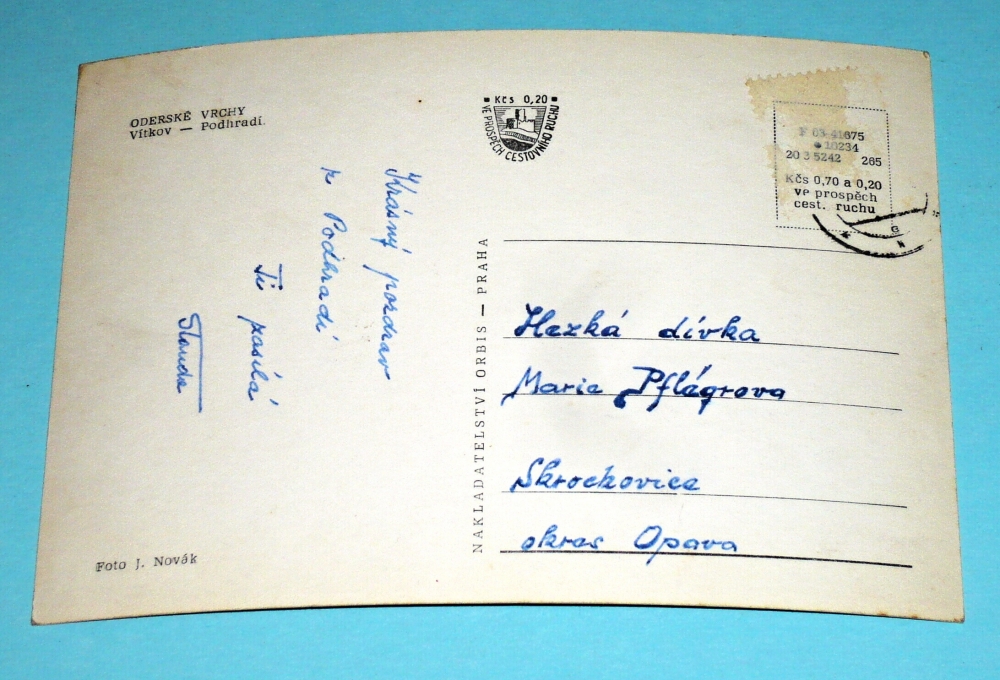 ODERSKÉ VRCHY
Vítkov — Podhradí.
Krásný pozdrav
z Podhradí
Ti zasílá
Slouda
Foto J. Novák
NAKLADATELSTVÍ ORBIS — PRAHA
Kčs 0,20
VE PROSPĚCH CESTOVNÍHO RUCHU
F 03 41675
10234
20 3 5242 265
Kčs 0,70 a 0,20
ve prospěch
cest. ruchu
Hezká dívka
Marie Pflégrova
Skrochovice
okres Opava